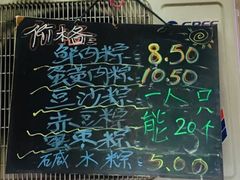 价格
鲜肉粽: 8.50
蛋黄肉粽 10.50
豆沙粽 一人只
赤豆粽 能20个
蜜枣粽
碱水粽: 5.00